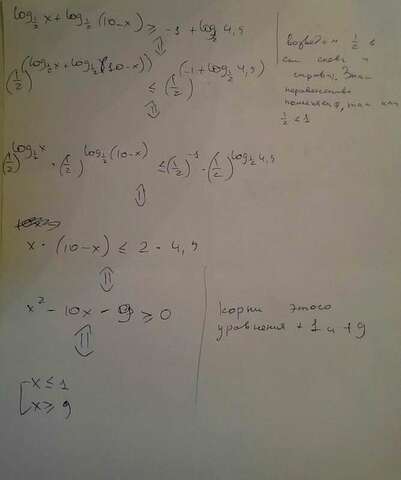 log½ x + log½ (10-x) ≥ -1 + log½ 4,5
⇕
(1/2)^(log½ x + log½ (10-x)) ≤ (1/2)^(-1 + log½ 4,5)
⇕
(1/2)^log½ x · (1/2)^log½ (10-x) ≤ (1/2)^-1 · (1/2)^log½ 4,5
⇕
x · (10-x) ≤ 2 · 4,5
⇕
x² - 10x - 9 ≥ 0
⇕
[ x ≤ 1
x ≥ 9
Возведем 1/2 в
слева и
справа. Знак
неравенства
так как
1/2 < 1
корни этого
уравнения + 1 и + 9